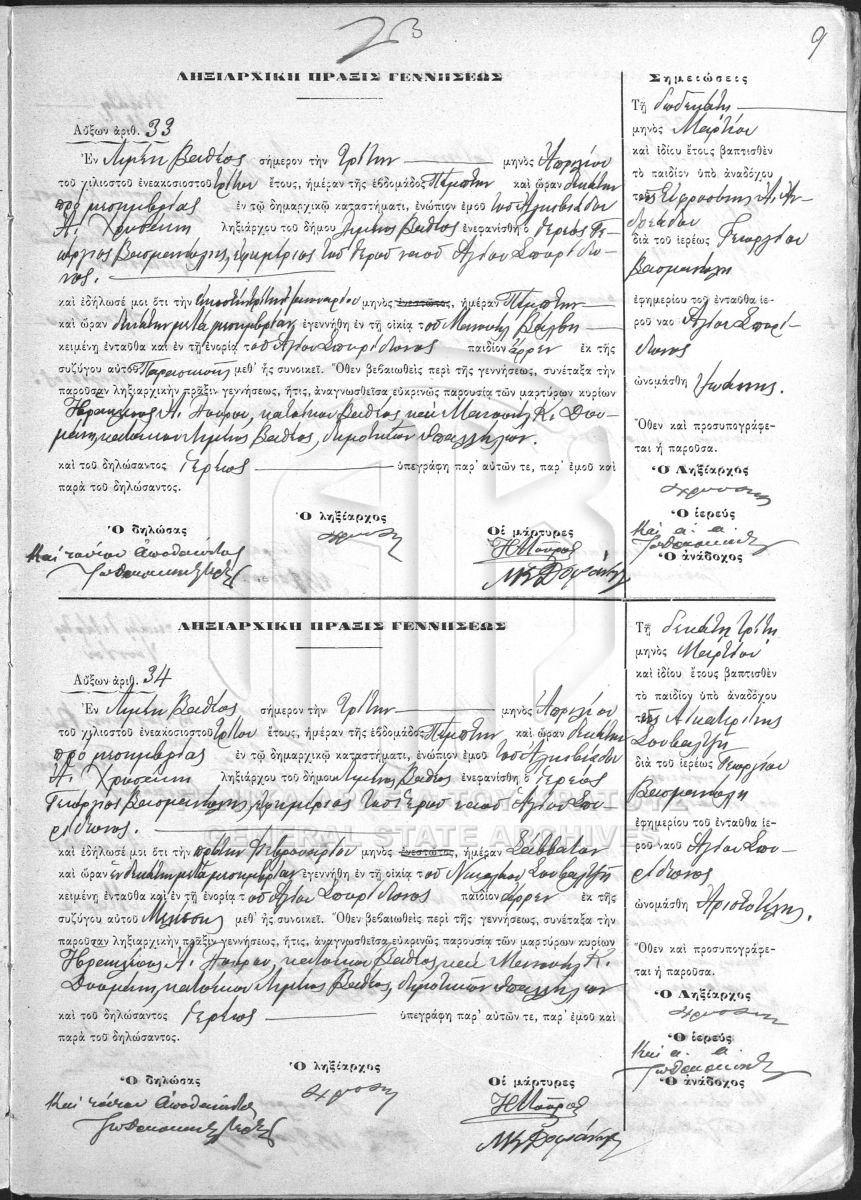 9
ΛΗΞΙΑΡΧΙΚΗ ΠΡΑΞΙΣ ΓΕΝΝΗΣΕΩΣ
Αὔξων ἀριθ. 33
Ἐν Λιμένι Βαθέος σήμερον τὴν τρίτην μηνὸς Ἀπριλίου
τοῦ χιλιοστοῦ ἐνεακοσιοστοῦ τρίτου ἔτους, ἡμέραν τῆς ἑβδομάδος Πέμπτην καὶ ὥραν δεκάτην
πρὸ μεσημβρίας ἐν τῷ δημαρχικῷ καταστήματι, ἐνώπιον ἐμοῦ τοῦ Ἀλκιβιάδου
Α. Χρυσάνη ληξιάρχου τοῦ δήμου Λιμένος Βαθέος ἐνεφανίσθη ὁ ἱερεὺς Γε-
ώργιος ἐφημέριος τοῦ ἱεροῦ ναοῦ Ἁγίου Σπυρίδω-
νος.
καὶ ἐδήλωσέ μοι ὅτι τὴν εἰκοστὴν τρίτην Ἰανουαρίου μηνὸς ἐνεστῶτος, ἡμέραν Πέμπτην
καὶ ὥραν δεκάτην μετὰ μεσημβρίαν ἐγεννήθη ἐν τῇ οἰκίᾳ τοῦ Μανουὴλ
κειμένῃ ἐνταῦθα καὶ ἐν τῇ ἐνορίᾳ τοῦ Ἁγίου Σπυρίδωνος παιδίον ἄρρεν ἐκ τῆς
συζύγου αὐτοῦ Παρασκευῆς μεθ' ἧς συνοικεῖ. Ὅθεν βεβαιωθεὶς περὶ τῆς γεννήσεως, συνέταξα τὴν
παροῦσαν ληξιαρχικὴν πρᾶξιν γεννήσεως, ἥτις, ἀναγνωσθεῖσα εὐκρινῶς παρουσίᾳ τῶν μαρτύρων κυρίων
Ἡρακλέους Α. κατοίκου Βαθέος καὶ Μανουὴλ Κ.
κατοίκου Λιμένος Βαθέος, δημοτικῶν ὑπαλλήλων.
καὶ τοῦ δηλώσαντος ἱερέως ὑπεγράφη παρ' αὐτῶν τε, παρ' ἐμοῦ καὶ
παρὰ τοῦ δηλώσαντος.
Ὁ δηλώσας Ὁ ληξίαρχος Οἱ μάρτυρες
Σημειώσεις
Τῇ δωδεκάτῃ
μηνὸς Μαρτίου
καὶ ἰδίου ἔτους βαπτισθὲν
τὸ παιδίον ὑπὸ ἀναδόχου
τῆς Εὐφροσύνης
διὰ τοῦ ἱερέως Γεωργίου
ἐφημερίου τοῦ ἐνταῦθα ἱε-
ροῦ ναο Ἁγίου Σπυρί-
δωνος
ὠνομάσθη Ἰωάννης.
Ὅθεν καὶ προσυπογράφε-
ται ἡ παροῦσα.
Ὁ Ληξίαρχος
Ὁ ἱερεύς
Ὁ ἀνάδοχος
ΛΗΞΙΑΡΧΙΚΗ ΠΡΑΞΙΣ ΓΕΝΝΗΣΕΩΣ
Αὔξων ἀριθ. 34
Ἐν Λιμένι Βαθέος σήμερον τὴν τρίτην μηνὸς Ἀπριλίου
τοῦ χιλιοστοῦ ἐνεακοσιοστοῦ τρίτου ἔτους, ἡμέραν τῆς ἑβδομάδος Πέμπτην καὶ ὥραν δεκάτην
πρὸ μεσημβρίας ἐν τῷ δημαρχικῷ καταστήματι, ἐνώπιον ἐμοῦ τοῦ Ἀλκιβιάδου
Α. Χρυσάνη ληξιάρχου τοῦ δήμου Λιμένος Βαθέος ἐνεφανίσθη ὁ ἱερεὺς
Γεώργιος ἐφημέριος τοῦ ἱεροῦ ναοῦ Ἁγίου Σπυ-
ρίδωνος.
καὶ ἐδήλωσέ μοι ὅτι τὴν πρώτην Φεβρουαρίου μηνὸς ἐνεστῶτος, ἡμέραν Σάββατον
καὶ ὥραν ἑνδεκάτην μετὰ μεσημβρίαν ἐγεννήθη ἐν τῇ οἰκίᾳ τοῦ Νικολάου
κειμένῃ ἐνταῦθα καὶ ἐν τῇ ἐνορίᾳ τοῦ Ἁγίου Σπυρίδωνος παιδίον ἄρρεν ἐκ τῆς
συζύγου αὐτοῦ μεθ' ἧς συνοικεῖ. Ὅθεν βεβαιωθεὶς περὶ τῆς γεννήσεως, συνέταξα τὴν
παροῦσαν ληξιαρχικὴν πρᾶξιν γεννήσεως, ἥτις, ἀναγνωσθεῖσα εὐκρινῶς παρουσίᾳ τῶν μαρτύρων κυρίων
Ἡρακλέους Α. κατοίκου Βαθέος καὶ Μανουὴλ Κ.
κατοίκου Λιμένος Βαθέος, δημοτικῶν ὑπαλλήλων
καὶ τοῦ δηλώσαντος ἱερέως ὑπεγράφη παρ' αὐτῶν τε, παρ' ἐμοῦ καὶ
παρὰ τοῦ δηλώσαντος.
Ὁ δηλώσας Ὁ ληξίαρχος Οἱ μάρτυρες
Τῇ δεκάτῃ τρίτῃ
μηνὸς Μαρτίου
καὶ ἰδίου ἔτους βαπτισθὲν
τὸ παιδίον ὑπὸ ἀναδόχου
τῆς Αἰκατερίνης
διὰ τοῦ ἱερέως Γεωργίου
ἐφημερίου τοῦ ἐνταῦθα ἱε-
ροῦ ναοῦ Ἁγίου Σπυ-
ρίδωνος
ὠνομάσθη Ἀριστοτέλης.
Ὅθεν καὶ προσυπογράφε-
ται ἡ παροῦσα.
Ὁ Ληξίαρχος
Ὁ ἱερεύς
Ὁ ἀνάδοχος
ΓΕΝΙΚΑ ΑΡΧΕΙΑ ΤΟΥ ΚΡΑΤΟΥΣ
GENERAL STATE ARCHIVES